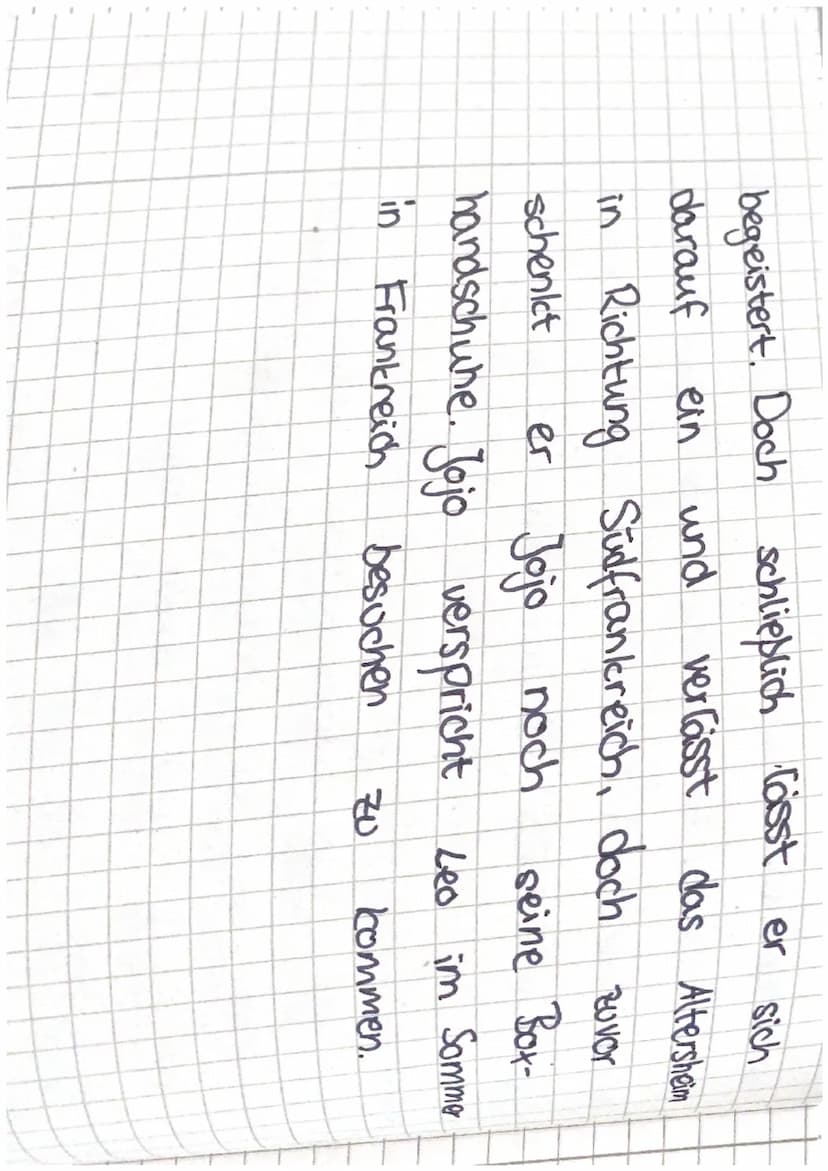 begeistert. Doch schließlich lässt er sich
darauf ein und verlässt das Altersheim
in Richtung Südfrankreich, doch zuvor
schenkt er Jojo noch seine Box-
handschuhe. Jojo verspricht Leo im Sommer
in Frankreich besuchen zu kommen.